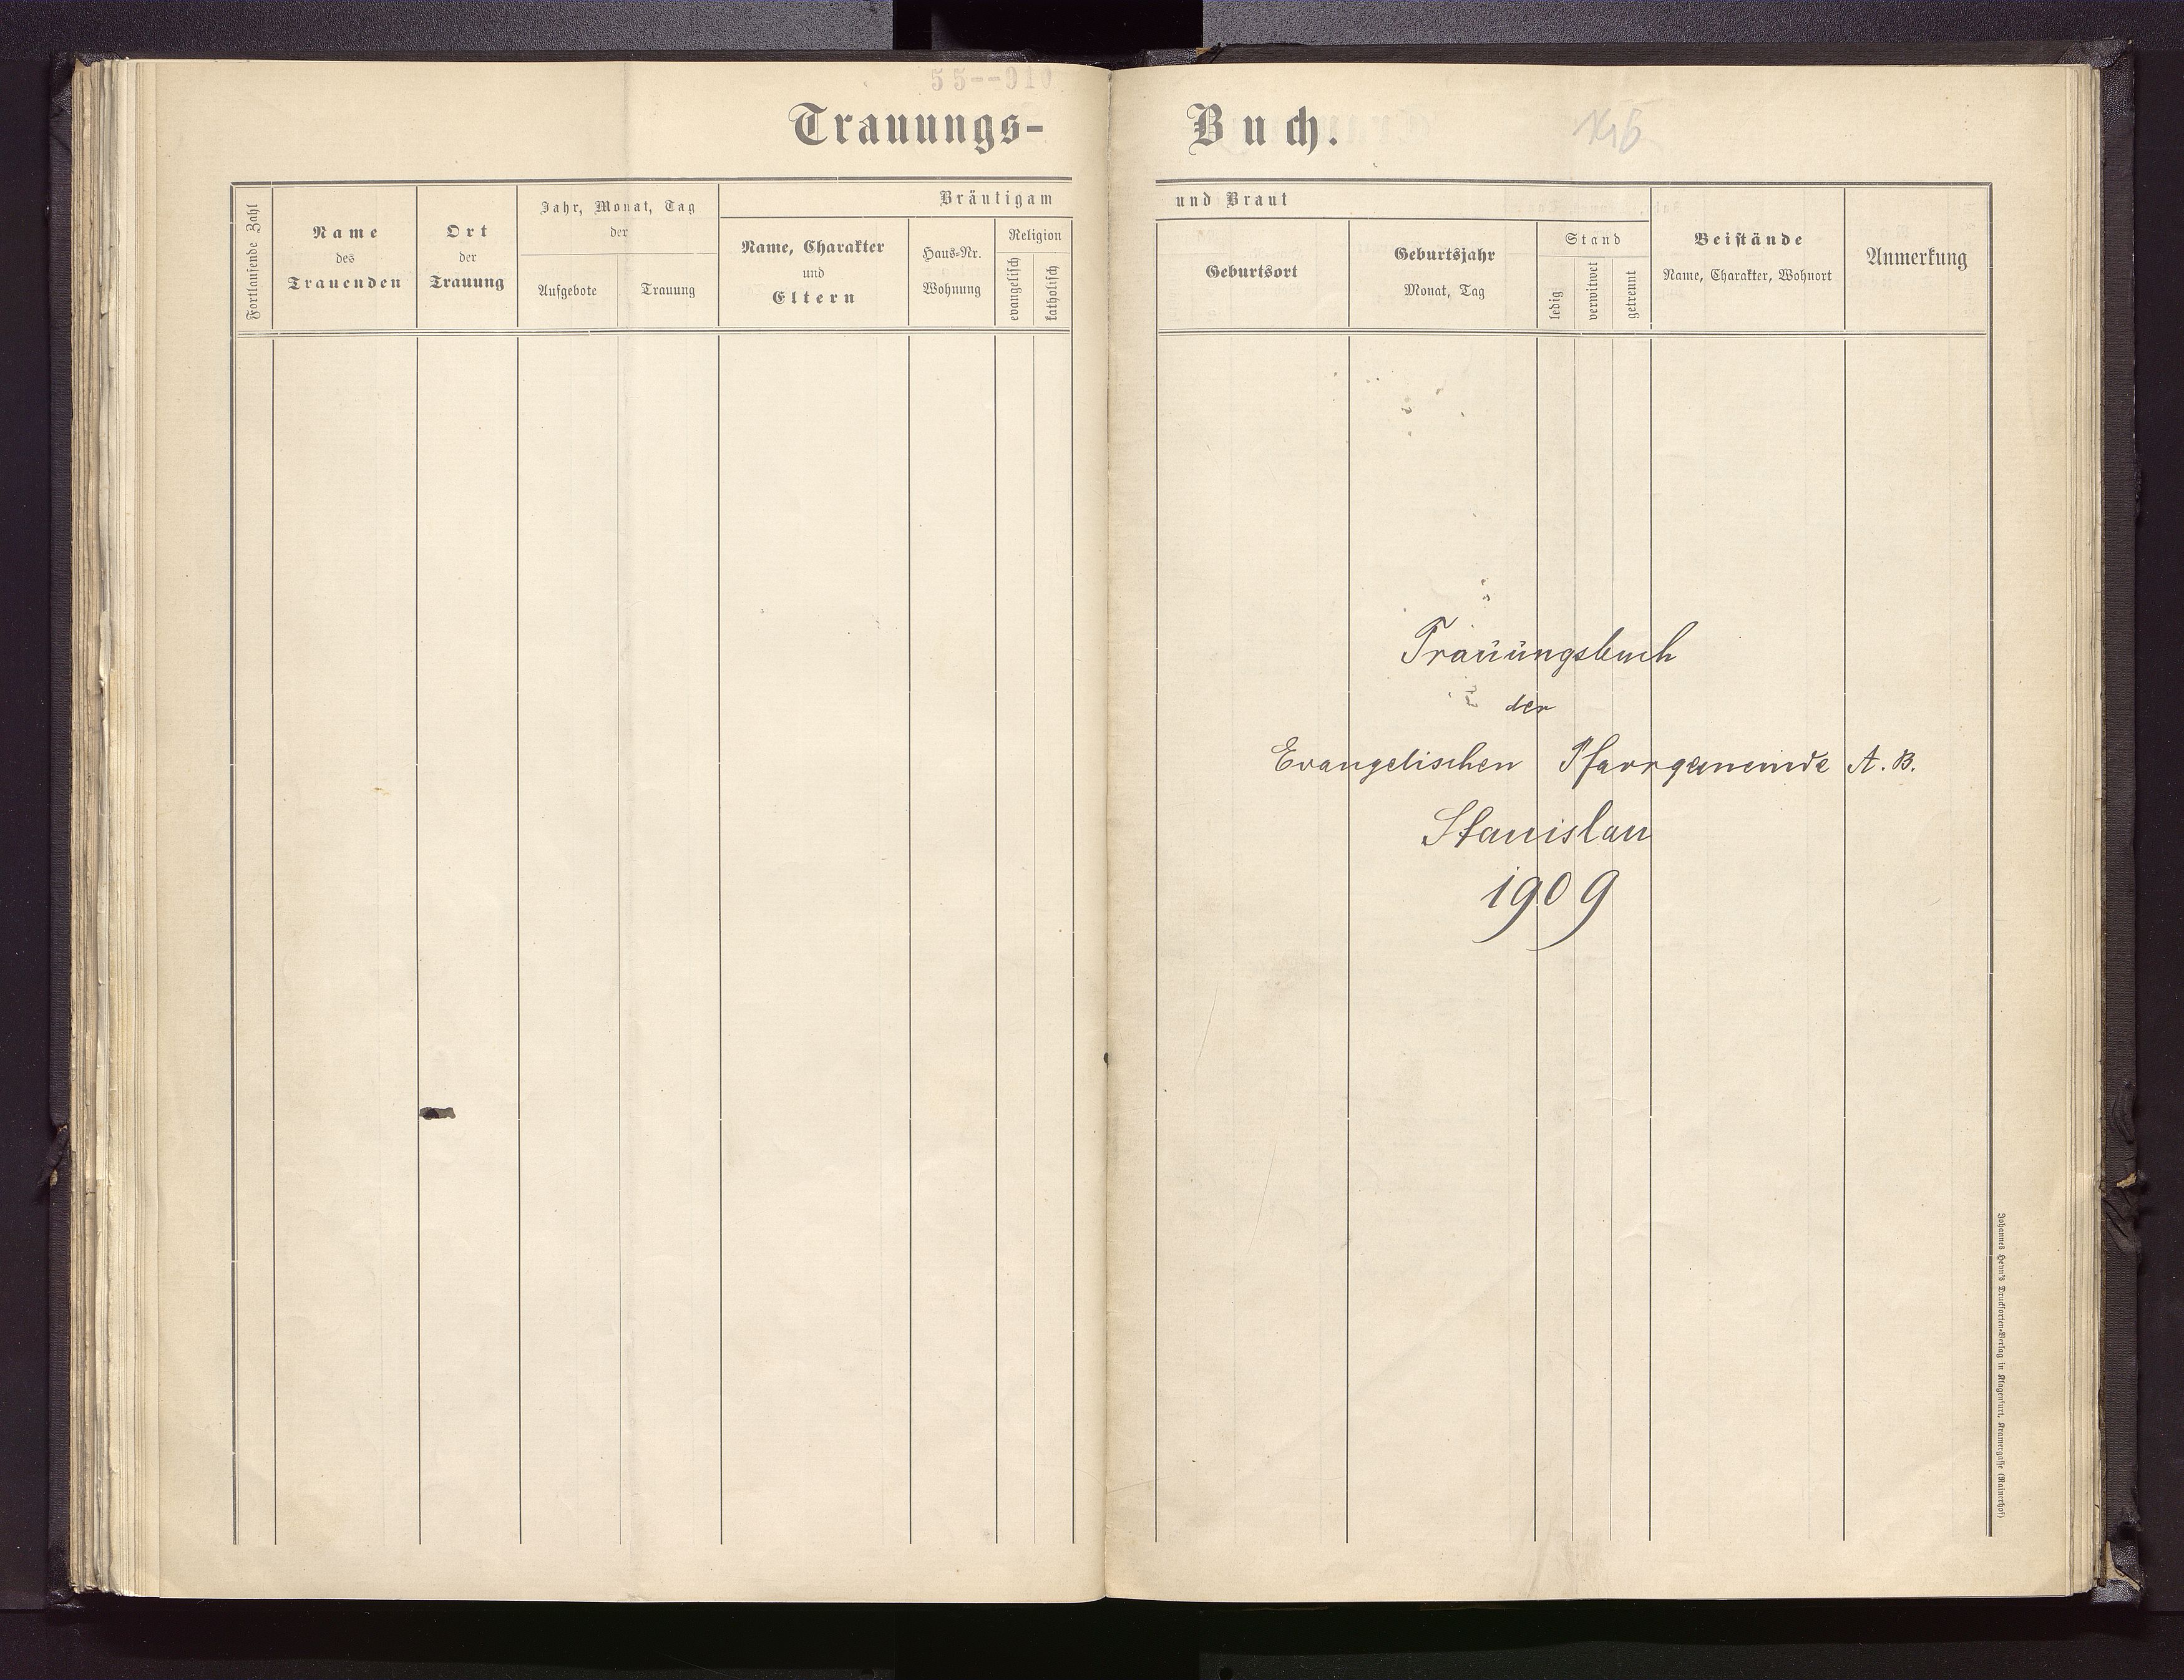 55--910
Trauungs-
Fortlaufende Zahl
Name
des
Trauenden
Ort
der
Trauung
Jahr, Monat, Tag
der
Aufgebote
Trauung
Bräutigam
Name, Charakter
und
Eltern
Haus-Nr.
Wohnung
Religion
evangelisch
katholisch
Buch.
und Braut
Geburtsort
Geburtsjahr
Monat, Tag
Stand
ledig
verwitwet
getrennt
Beistände
Name, Charakter, Wohnort
Anmerkung
Trauungsbuch
der
Evangelischen Pfarrgemeinde A. B.
Stanislau
1909
Johannes Heyn's Drucksorten-Verlag in Klagenfurt, Kramergasse (Rainerhof)